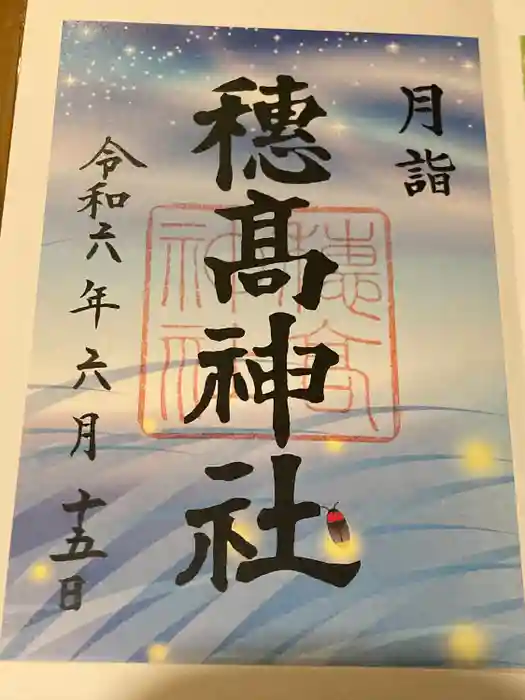 月詣
穂髙神社
穂髙神社
令和六年六月十五日